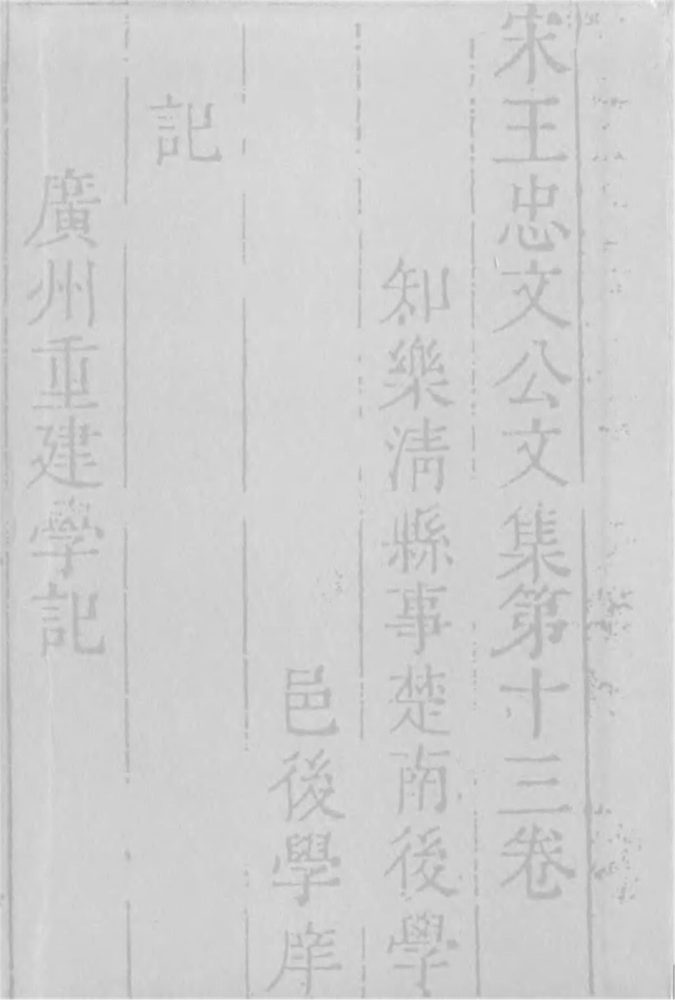 宋王忠文公文集第十三卷
知樂清縣事楚南後學
邑後學庠
記
廣州重建學記